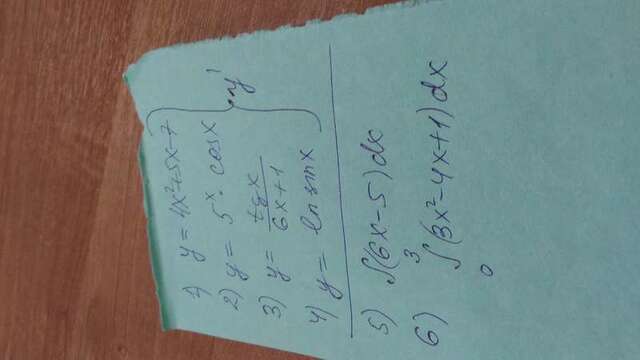 1) y = 4x²+5x-7
2) y = 5ˣ · cosx
3) y = tgx / 6x+1
4) y = ln sinx
y'
5) ∫(6x-5)dx
6) ∫₀³(3x²-4x+1)dx